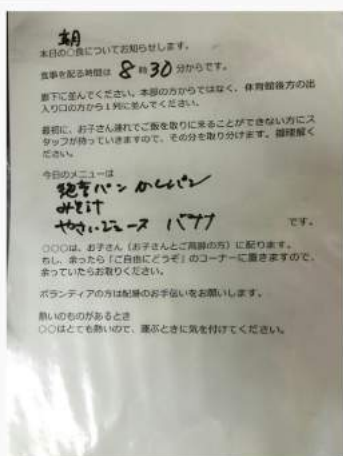 朝
本日の○食についてお知らせします。
食事を配る時間は 8時30分からです。
廊下に並んでください。本部の方からではなく、体育館後方の出
入り口の方から1列に並んでください。
最初に、お子さん連れでご飯を取りに来ることができない方にス
タッフが持っていきますので、その分を取り分けます。御理解く
ださい。
今日のメニューは
パン パン
みそ汁
やさいジュース バナナ です。
○○○は、お子さん（お子さんとご高齢の方）に配ります。
もし、余ったら「ご自由にどうぞ」のコーナーに置きますので、
余っていたらお取りください。
ボランティアの方は配膳のお手伝いをお願いします。
熱いのものがあるとき
○○はとても熱いので、運ぶときに気を付けてください。